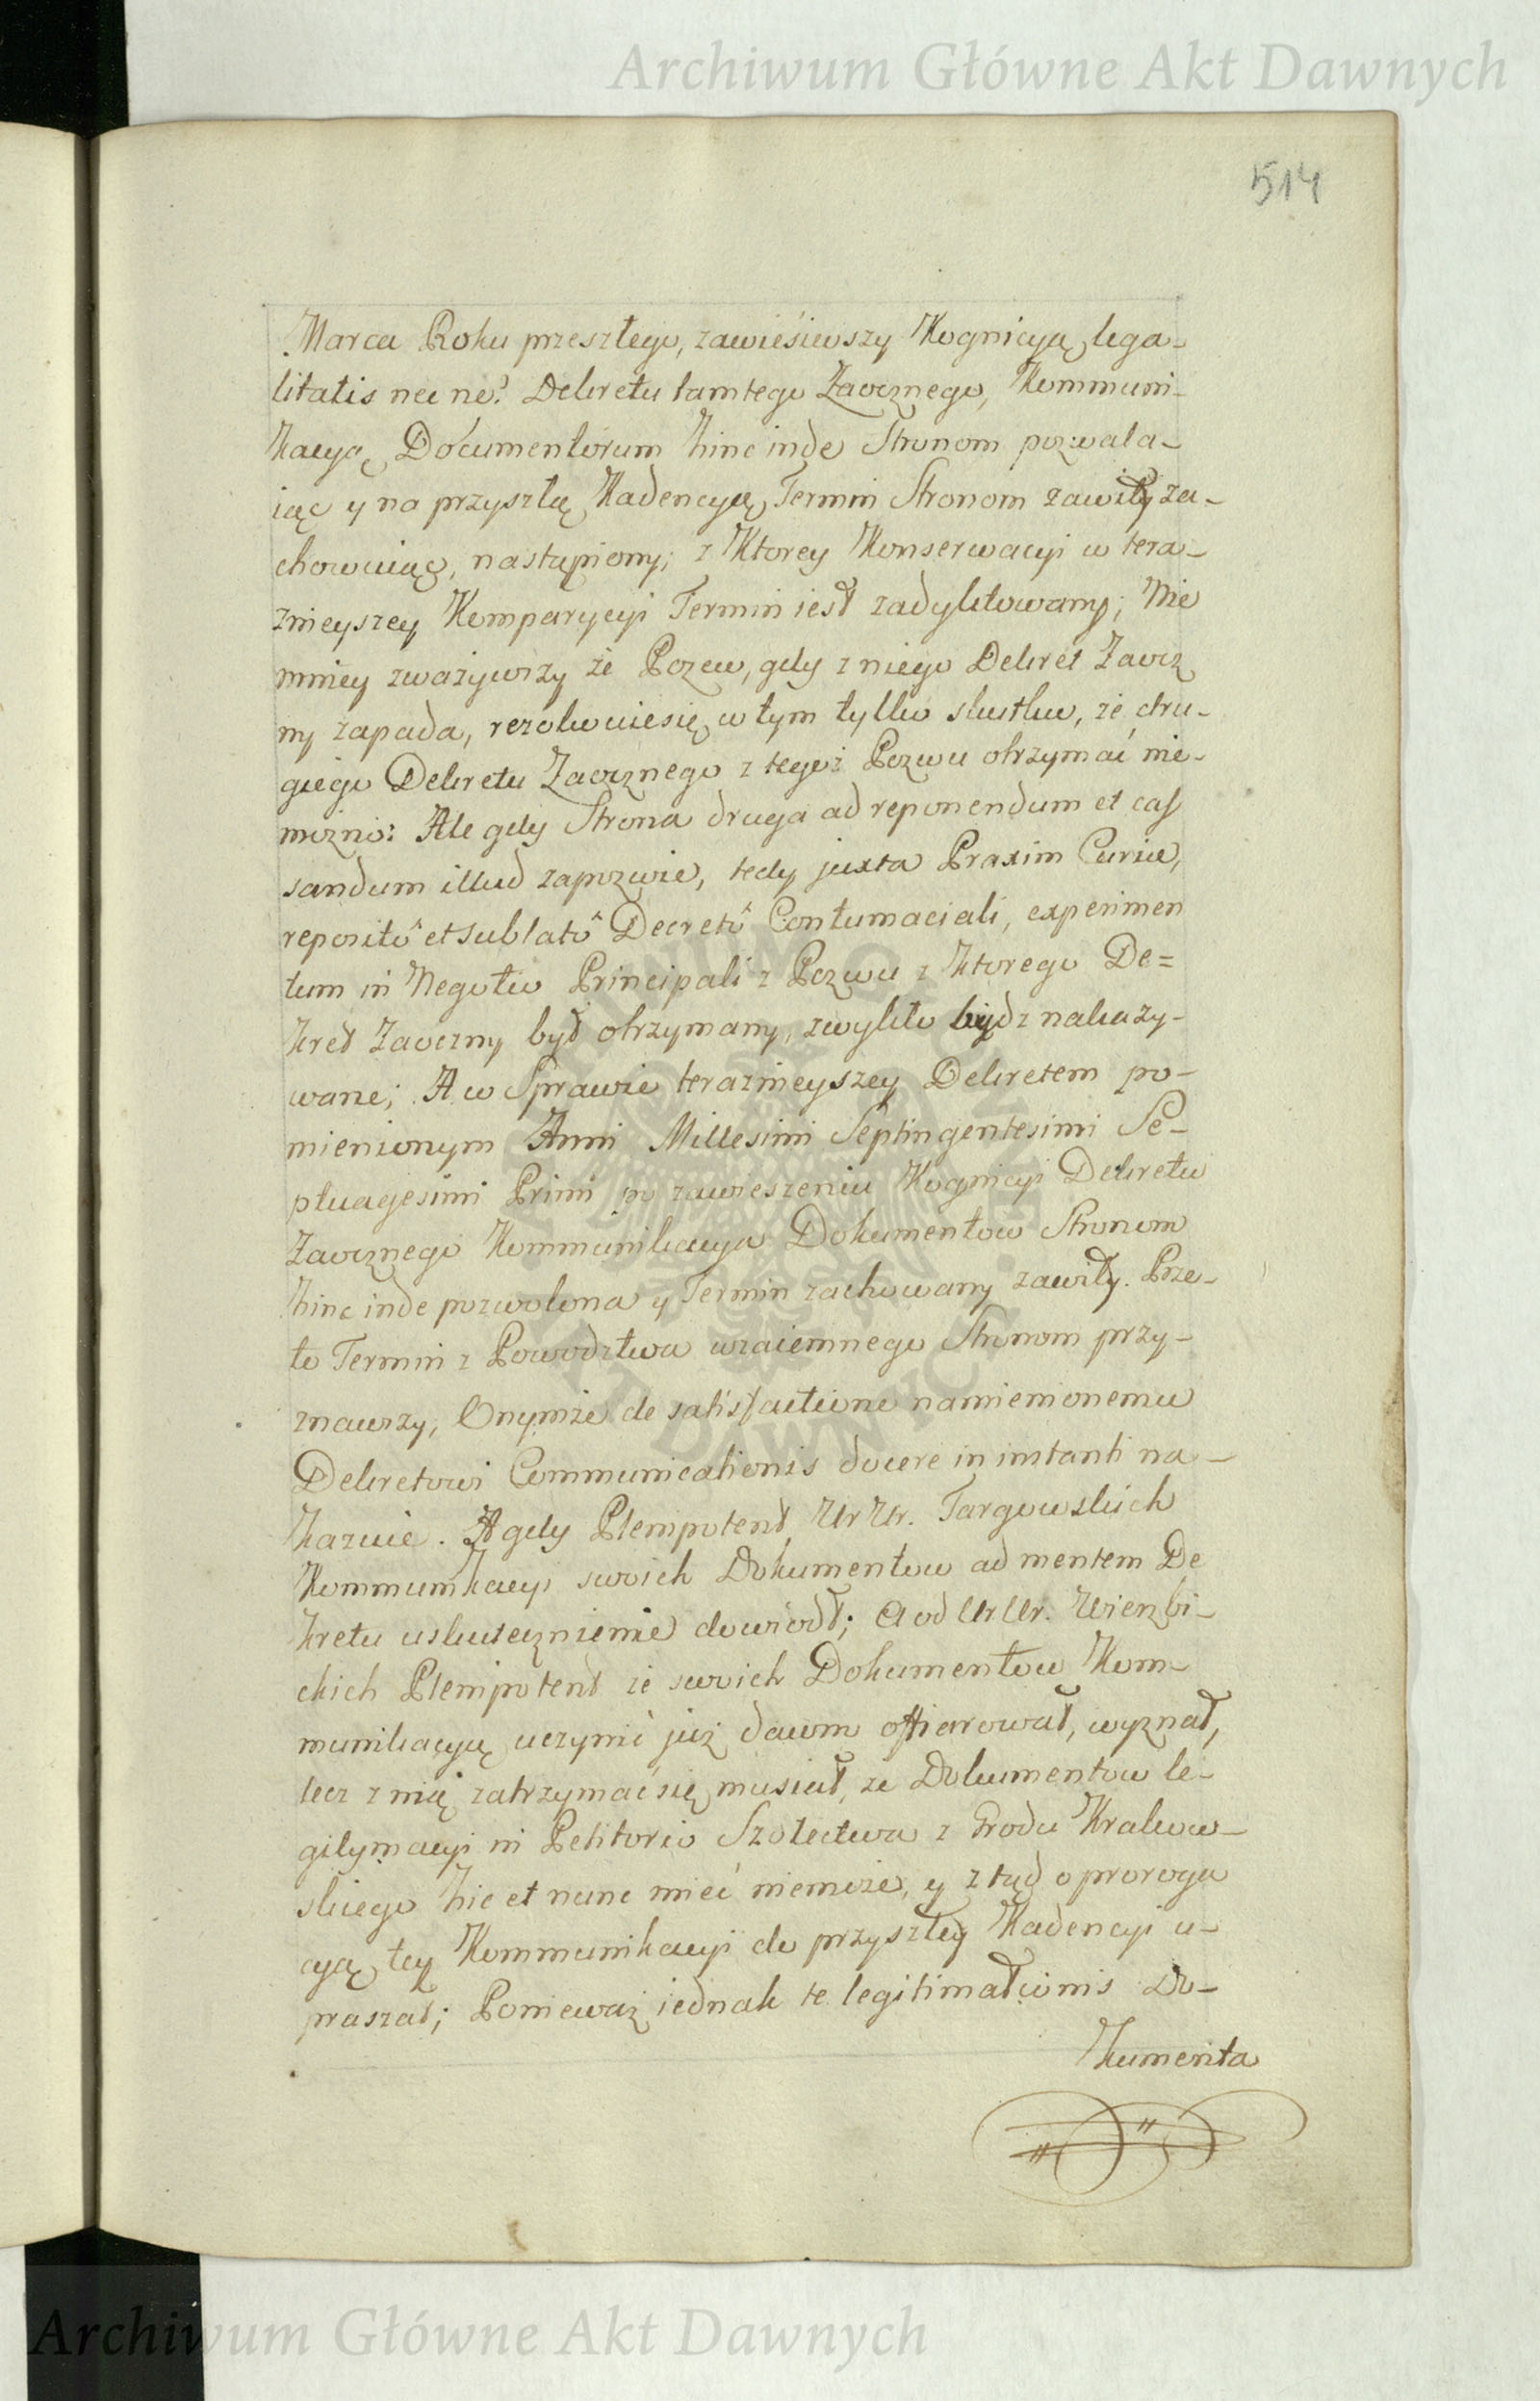 Archiwum Główne Akt Dawnych
514
Marca Roku przeszłego, zawiesiwszy Kognicyą lega-
litatis nec ne? Dekretu tamtego Zaocznego, Kommuni-
kacyą Documentorum hinc inde Stronom pozwala-
iąc y na przyszłą Kadencyą Termin Stronom zawity za-
chowuiąc, nastąpiony; z Ktorey Konserwacyi w tera-
znieyszey Komparycyi Termin iest zadyktowany; Nie
mniey zważywszy że Pozew, gdy z niego Dekret Zaocz
ny zapada, rezolwuiesię w tym tylko skutku, że dru-
giego Dekretu Zaocznego z tegoż Pozwu otrzymać nie-
możno: Ale gdy Strona druga ad reponendum et cas
sandum illud zapozwie, tedy juxta Praxim Curiæ,
repositô et sublatô Decretô Contumaciali, experimen
tum in Negotio Principali z Pozwu z Ktorego De=
kret Zaoczny był otrzymany, zwykło bydz nakazy-
wane; A w Sprawie teraznieyszey Dekretem po-
mienionym Anni Millesimi Septingentesimi Se-
ptuagesimi Primi po zawieszeniu Kognicyi Dekretu
Zaocznego Kommunikacya Dokumentow Stronom
hinc inde pozwolona y Termin zachowany zawity. Prze-
to Termin z Powodztwa wzaiemnego Stronom przy-
znawszy, Onymże de satisfactione namienionemu
Dekretowi Communicationis docere in instanti na-
kazuie. A gdy Plenipotent Ur Ur. Targowskich
Kommunikacyi swoich Dokumentow ad mentem De
kretu uskutecznienie dowiodł; A od Ur Ur. Wierzbi-
ckich Plenipotent że swoich Dokumentow Kom-
munikacyą uczynić już dawno offiarował, wyznał,
lecz z nią zatrzymać się musiał, że Dokumentow le-
gitymacyi in Petitorio Szołectwa z Grodu Krakow-
skiego hic et nunc mieć niemoże, y ztąd o proroga
cyą tey Kommunikacyi do przyszłey Kadencyi u-
praszał; Ponieważ iednak te legitimationis Do-
kumenta
Archiwum Główne Akt Dawnych